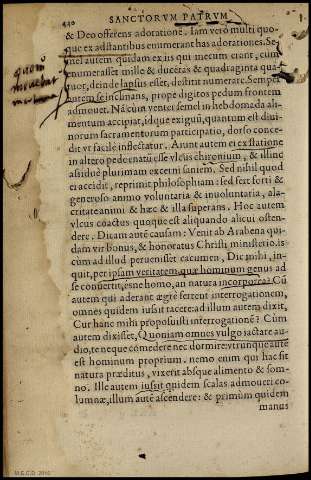 440 SANCTORVM PATRVM
& Deo offerens adorationē. Iam verò multi quo-
que ex adstantibus enumerant has adorationes. Se-
mel autem quidam ex iis qui mecum erant, cum
enumerasset mille & ducētas & quadraginta qua-
tuor, deinde lapsus esset, destitit numerare. Semper
autem se inclinans, prope digitos pedum frontem
admouet. Nā cùm venter semel in hebdomada ali-
mentum accipiat, idque exiguū, quantum est diui-
norum sacramentorum participatio, dorso conce-
dit vt facile inflectatur. Aiunt autem ei ex statione
in altero pede enatū esse vlcus chironium, & illinc
assidue plurimam excerni saniem. Sed nihil quod
ei accidit, reprimit philosophiam: sed fert forti &
generoso animo voluntaria & inuoluntaria, ala-
critate animi & hæc & illa superans. Hoc autem
vlcus coactus quoque est aliquando alicui osten-
dere. Dicam autē causam: Venit ab Arabena qui-
dam vir bonus, & honoratus Christi ministerio. is
cùm ad illud peruenisset cacumen, Dic mihi, in-
quit, per ipsam veritatem quæ hominum genus ad
se conuertit, es ne homo, an natura incorporea? Cū
autem qui aderant ægrè ferrent interrogationem,
omnes quidem iussit tacere: ad illum autem dixit,
Cur hanc mihi proposuisti interrogationē? Cùm
autem dixisset, Quoniam omnes vulgo iactare au-
dio, te neque comedere nec dormire: vtrunque autē
est hominum proprium. nemo enim qui hac sit
natura præditus, vixerit absque alimento & som-
no. Ille autem iussit quidem scalas admoueri co-
lumnæ, illum autē ascendere: & primùm quidem
manus